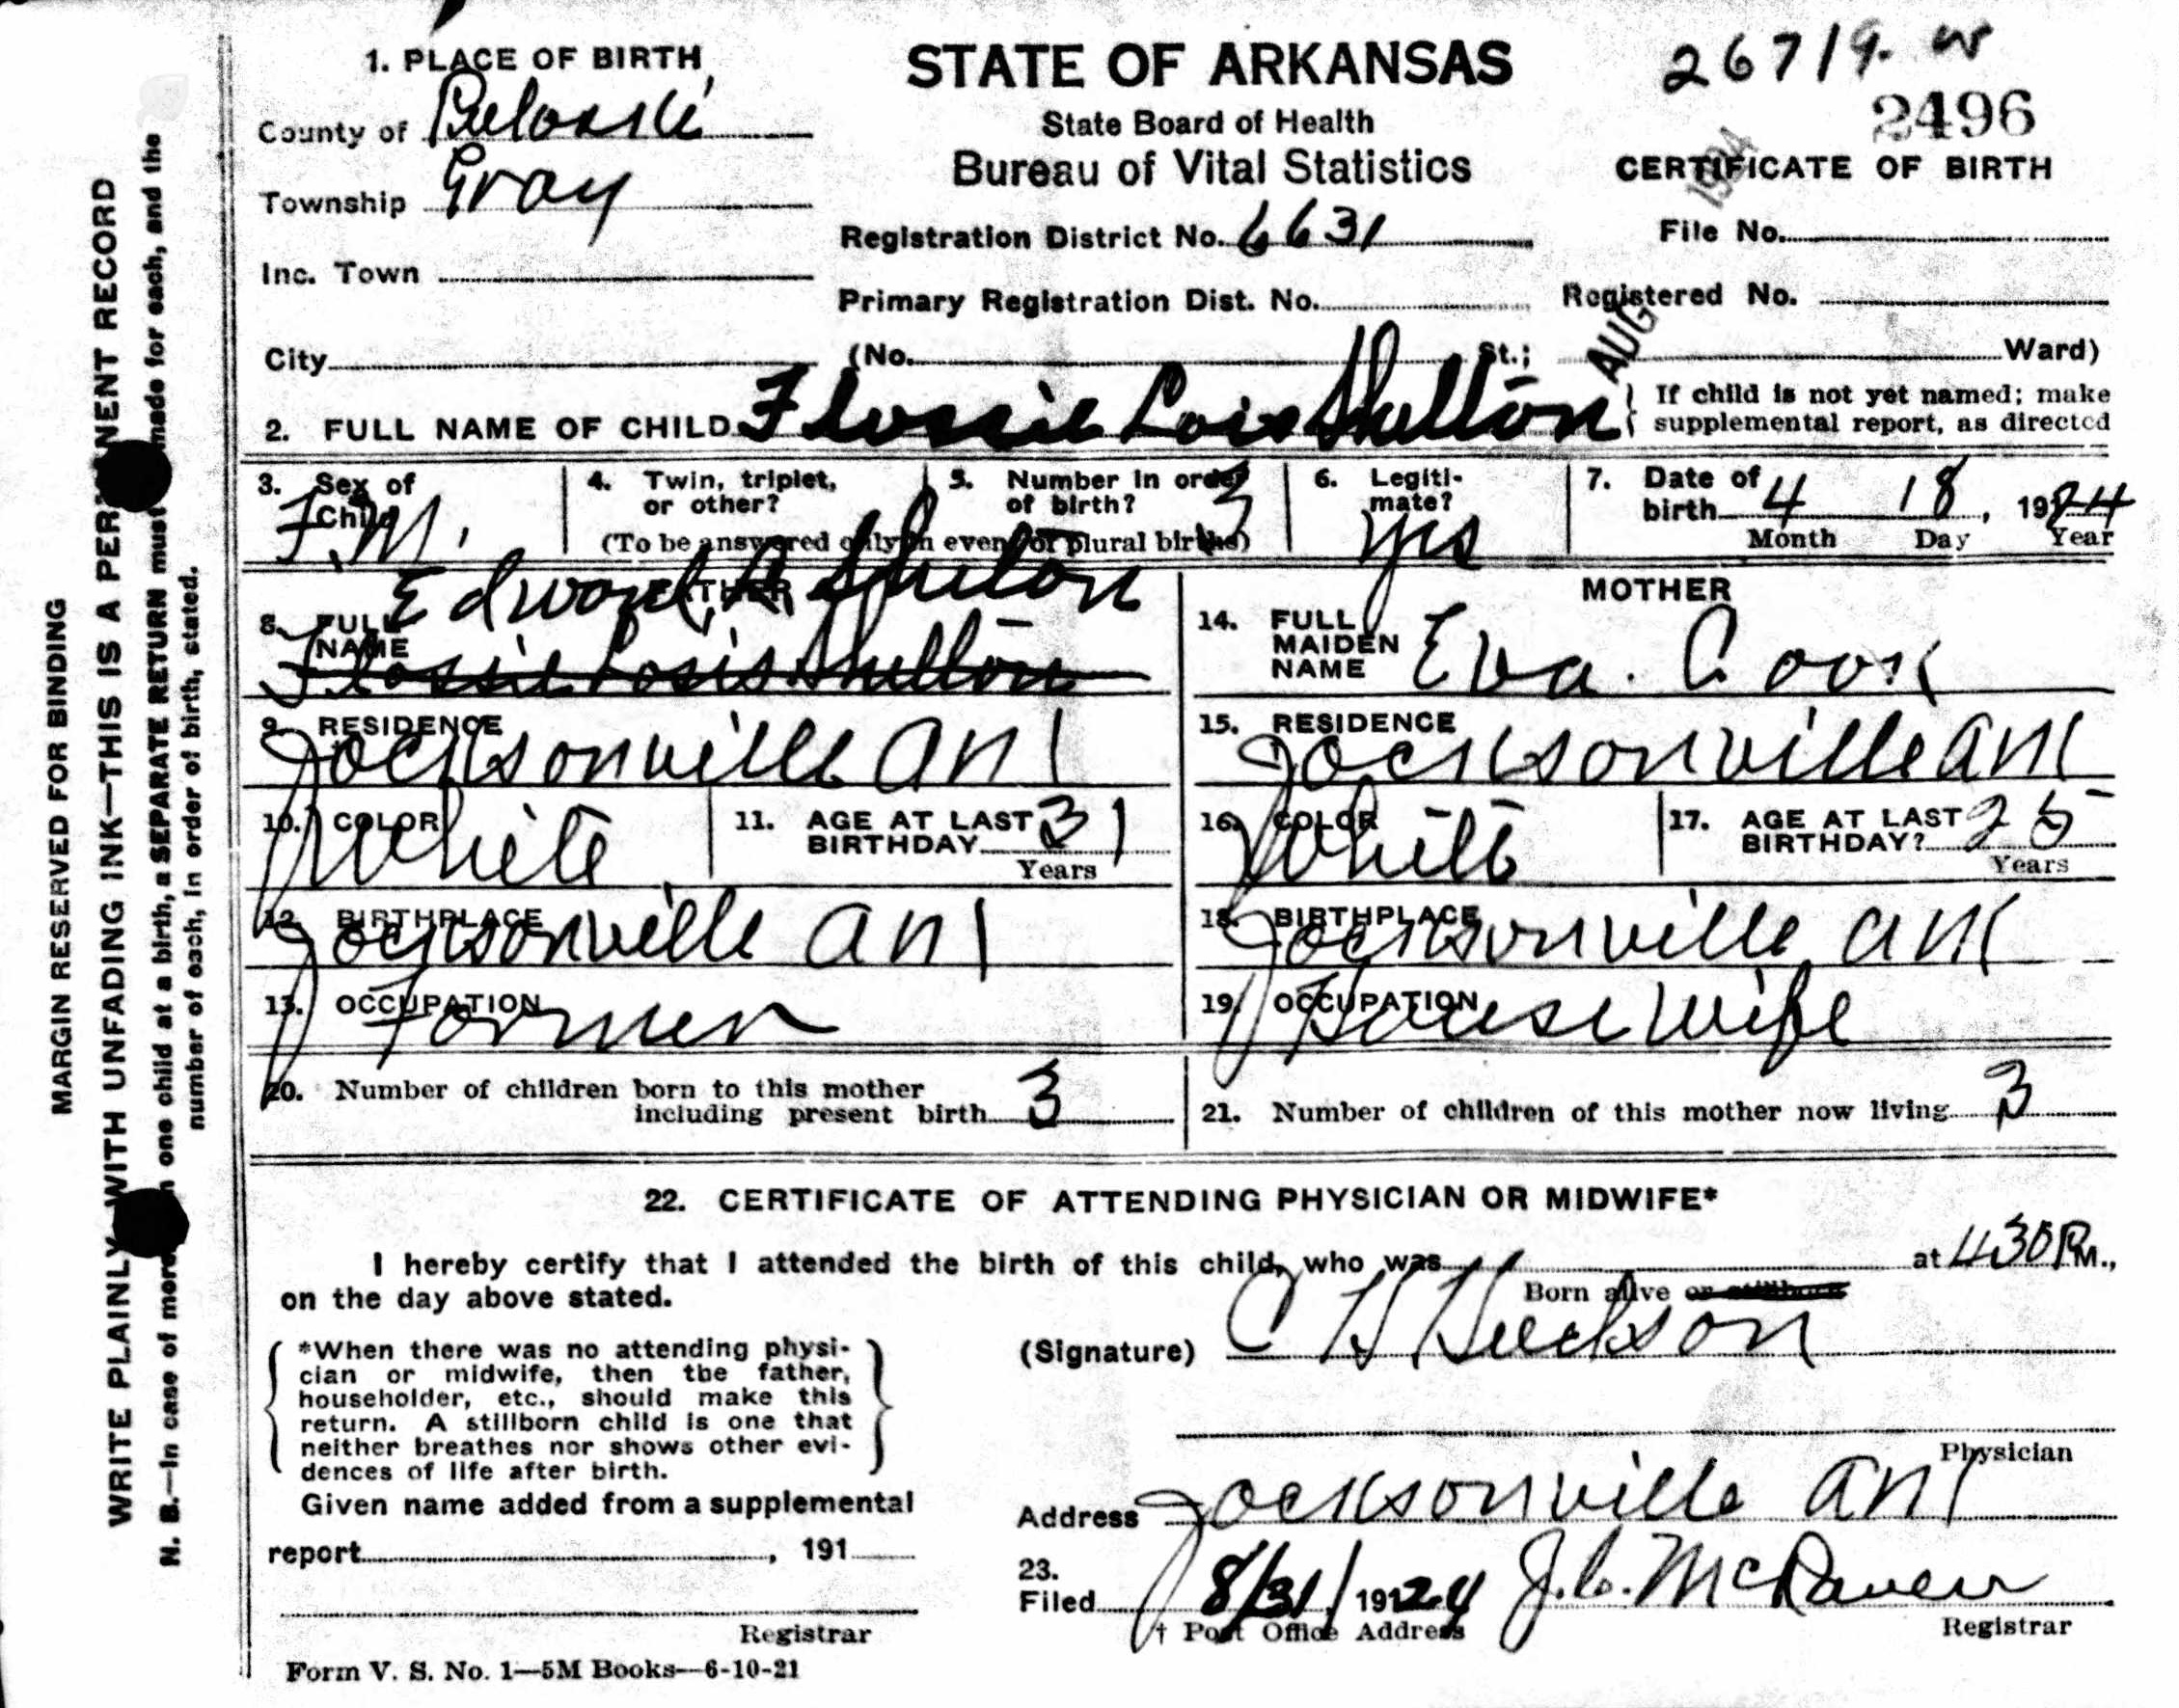 1. PLACE OF BIRTH
County of Puloski
Township Gray
Inc. Town
City
STATE OF ARKANSAS
State Board of Health
Bureau of Vital Statistics
Registration District No. 6631
Primary Registration Dist. No.
(No. St.; Ward)
26719.
2496
CERTIFICATE OF BIRTH
1924
File No.
Registered No.
AUG
2. FULL NAME OF CHILD Flossie Lois Shelton
If child is not yet named; make
supplemental report, as directed
3. Sex of
Child
F.M.
4. Twin, triplet,
or other?
5. Number in order
of birth? 3
(To be answered only in event of plural births)
6. Legiti-
mate?
yes
7. Date of
birth 4 18, 1924
Month Day Year
FATHER
8. FULL
NAME
Edward A Shelton
Flossie Losis Shelton
9. RESIDENCE
Jacksonville Ark
10. COLOR
White
11. AGE AT LAST
BIRTHDAY 31
Years
12. BIRTHPLACE
Jacksonville Ark
13. OCCUPATION
Farmer
MOTHER
14. FULL
MAIDEN
NAME
Eva. Cook
15. RESIDENCE
Jacksonville Ark
16. COLOR
White
17. AGE AT LAST
BIRTHDAY? 25
Years
18. BIRTHPLACE
Jacksonville Ark
19. OCCUPATION
House wife
20. Number of children born to this mother
including present birth 3
21. Number of children of this mother now living 3
22. CERTIFICATE OF ATTENDING PHYSICIAN OR MIDWIFE*
I hereby certify that I attended the birth of this child, who was at 430 P.M.,
Born alive or stillborn
on the day above stated.
*When there was no attending physi-
cian or midwife, then the father,
householder, etc., should make this
return. A stillborn child is one that
neither breathes nor shows other evi-
dences of life after birth.
Given name added from a supplemental
report, 191
Registrar
Form V. S. No. 1—5M Books—6-10-21
(Signature) C H
Physician
Address Jacksonville Ark
23.
Filed 8/31/1924 J.C. McCraven
† Post Office Address
Registrar
MARGIN RESERVED FOR BINDING
WRITE PLAINLY WITH UNFADING INK—THIS IS A PERMANENT RECORD
N. B.—In case of more than one child at a birth, a SEPARATE RETURN must be made for each, and the
number of each, in order of birth, stated.